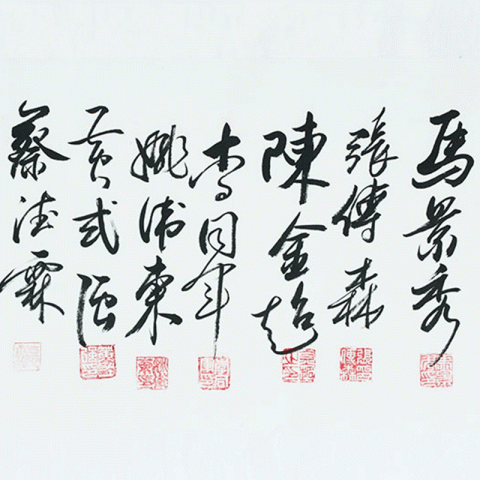 馬景秀
張傳森
陳金超
李同年
姚東
黃式強
蔡德霖